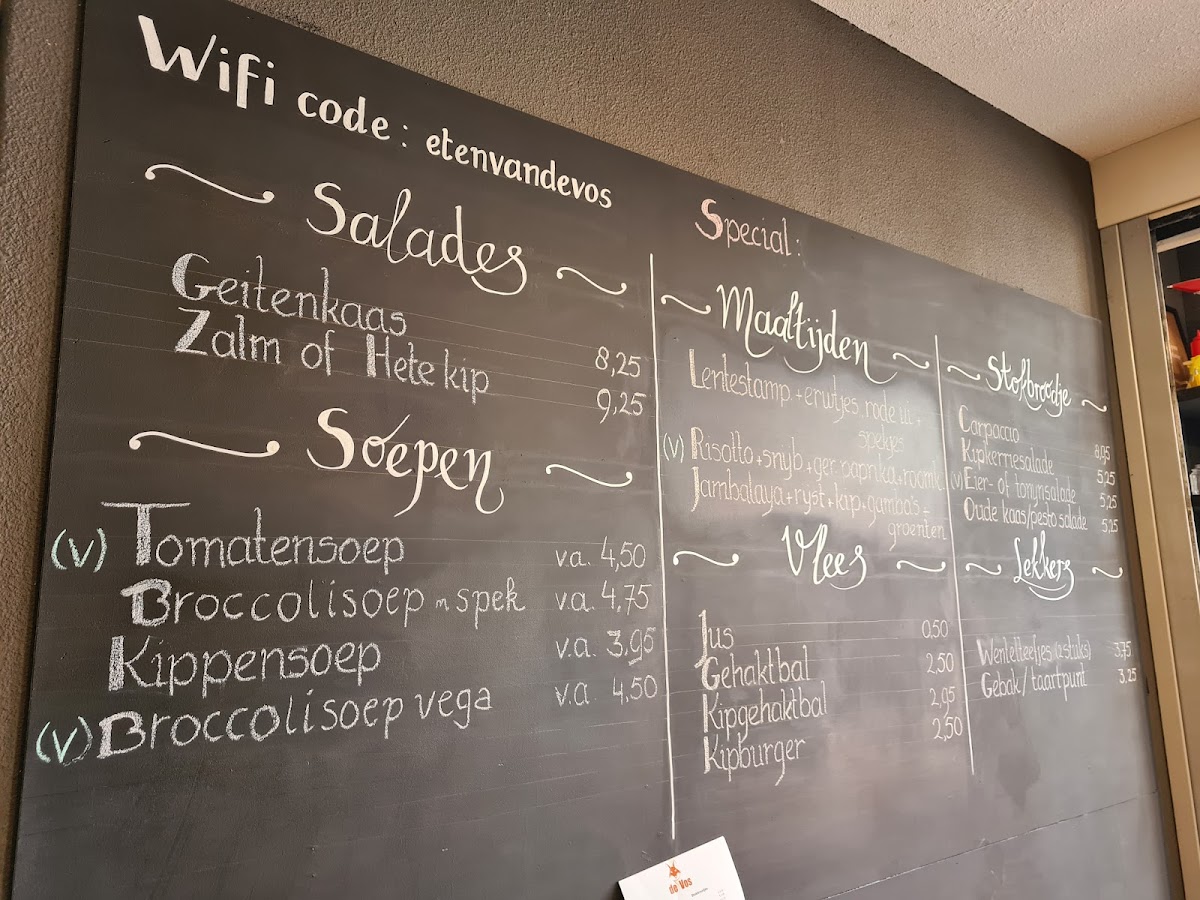 Wifi code: etenvandevos
Salades
Geitenkaas 8,25
Zalm of Hete kip 9,25
Soepen
(v) Tomatensoep v.a. 4,50
Broccolisoep m spek v.a. 4,75
Kippensoep v.a. 3,95
(v) Broccolisoep vega v.a 4,50
Special:
Maaltijden
Lentestamp + erwtjes, rode ui +
spekjes
(v) Risotto + snijb + ger. paprika + roomk
Jambalaya + rijst + kip + gamba's +
groenten
Vlees
Jus 0,50
Gehaktbal 2,50
Kipgehaktbal 2,95
Kipburger 2,50
Stokbroodje
Carpaccio 8,95
Kipkerriesalade 5,25
(v) Eier- of tonijnsalade 5,25
Oude kaas/pesto salade 5,25
Lekkers
Wentelteefjes 3,75
Gebak/taartpunt 3,25
de Vos